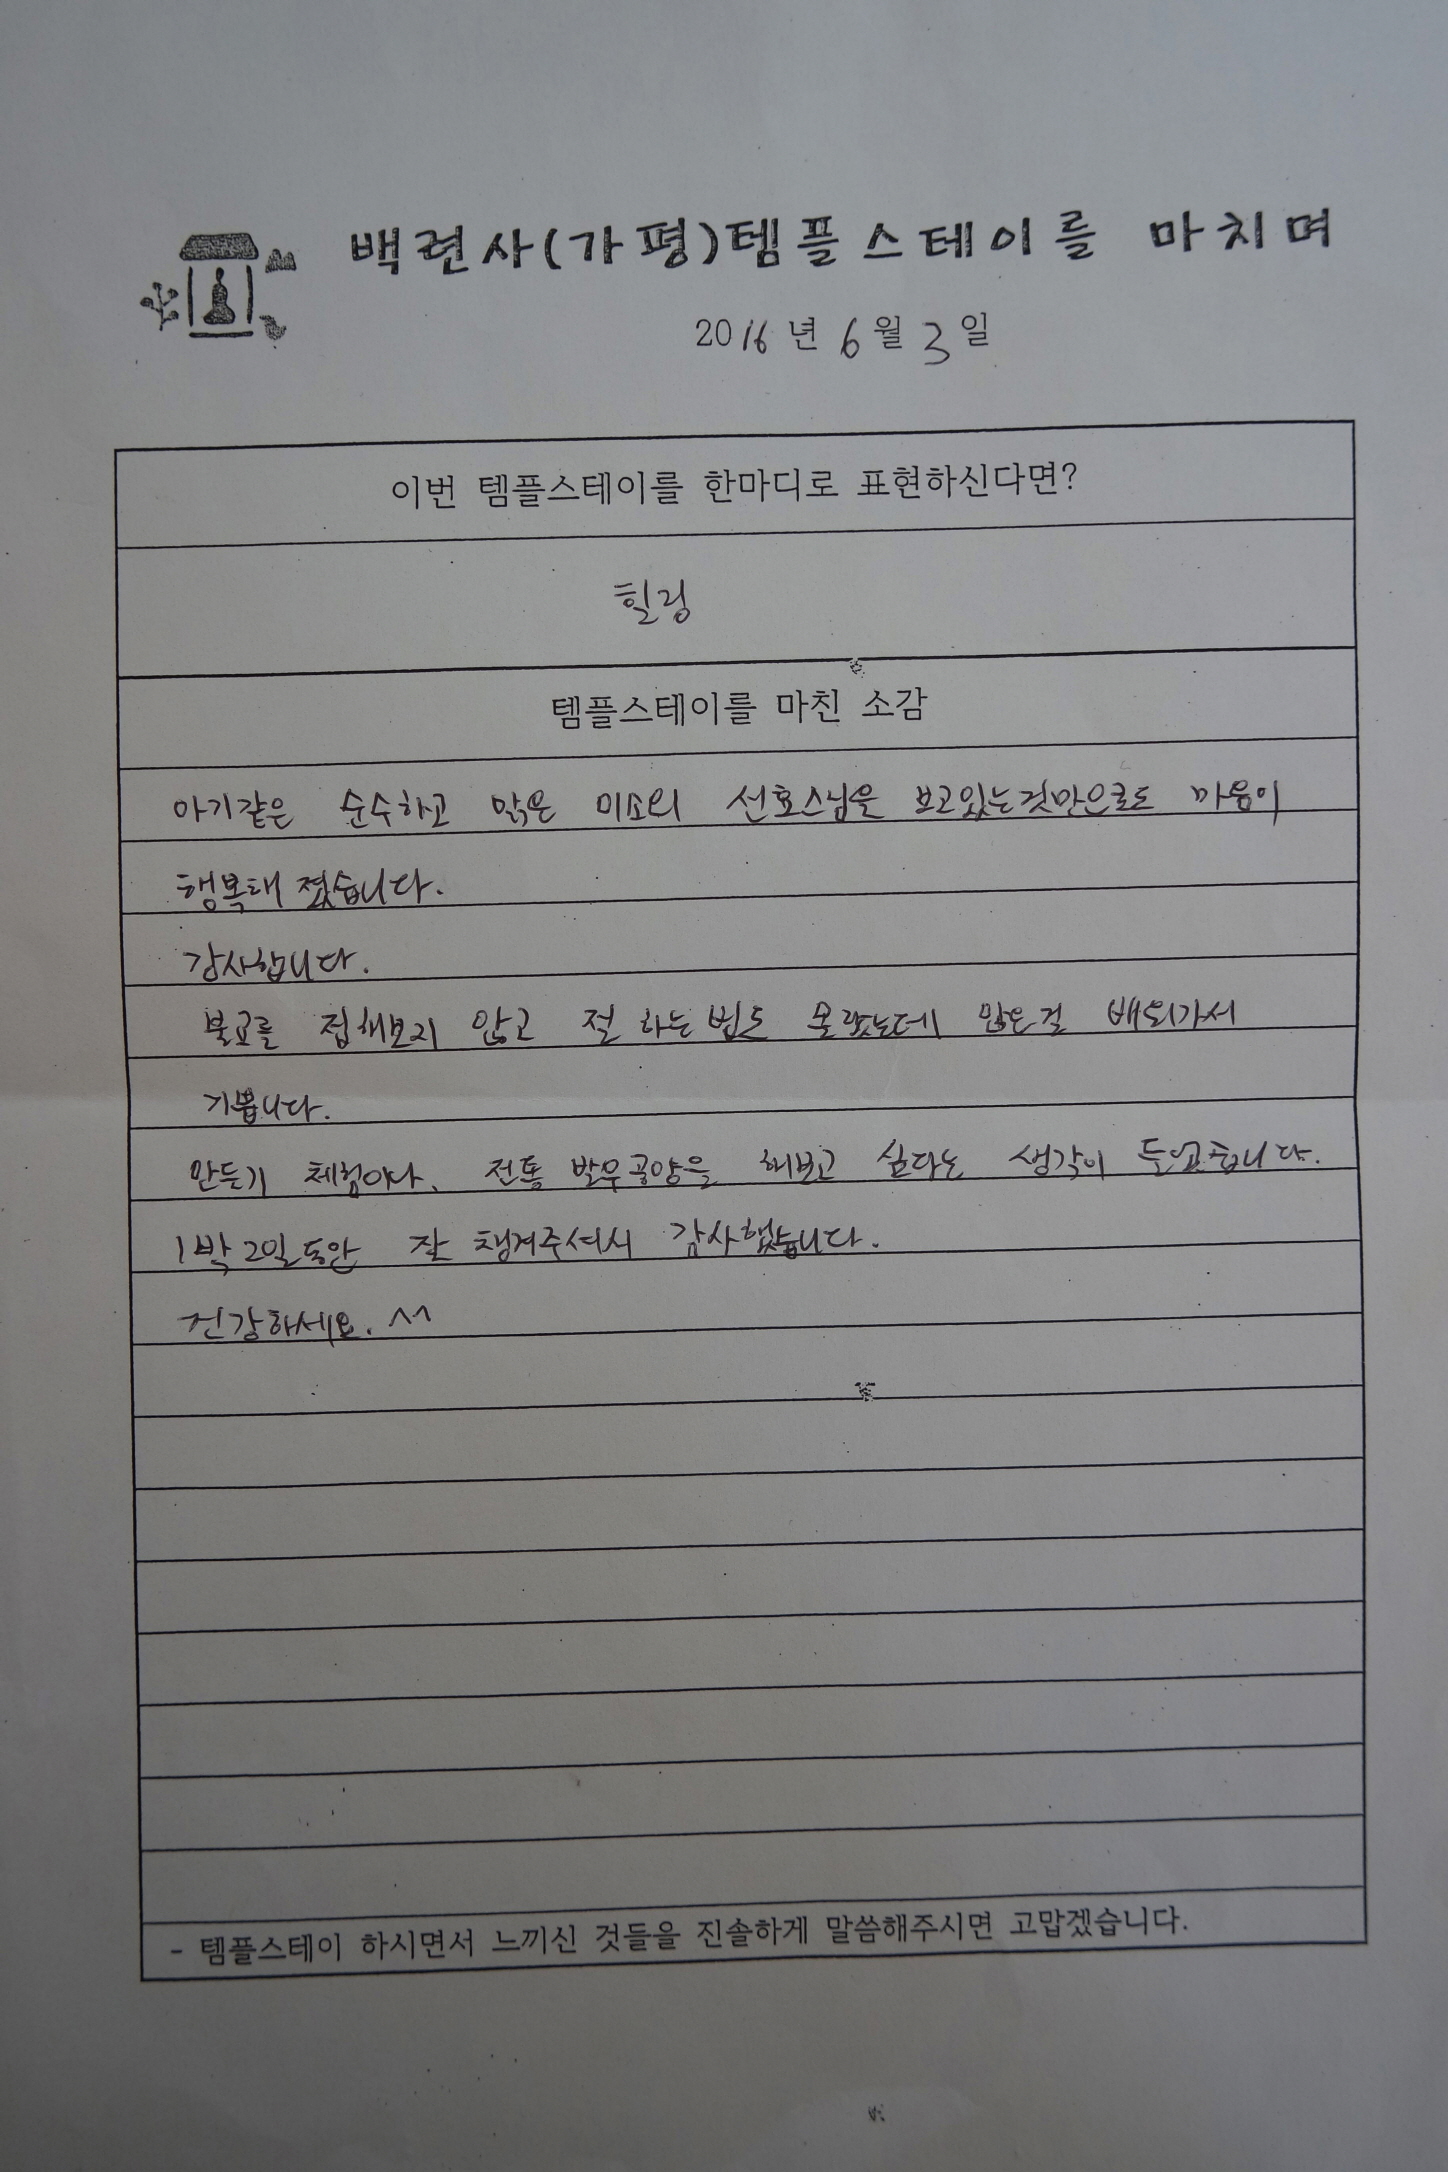 백련사(가평)템플스테이를 마치며
2016년 6월 3일
이번 템플스테이를 한마디로 표현하신다면?
힐링
템플스테이를 마친 소감
아기같은 순수하고 맑은 미소의 선효스님을 보고있는것만으로도 마음이
행복해 졌습니다.
감사합니다.
불교를 접해보지 않고 절 하는법도 몰랐는데 많은걸 배워가서
기쁩니다.
만들기 체험이나, 전통 발우공양을 해보고 싶다는 생각이 들었습니다.
1박 2일동안 잘 챙겨주셔서 감사했습니다.
건강하세요. ^^
- 템플스테이 하시면서 느끼신 것들을 진솔하게 말씀해주시면 고맙겠습니다.